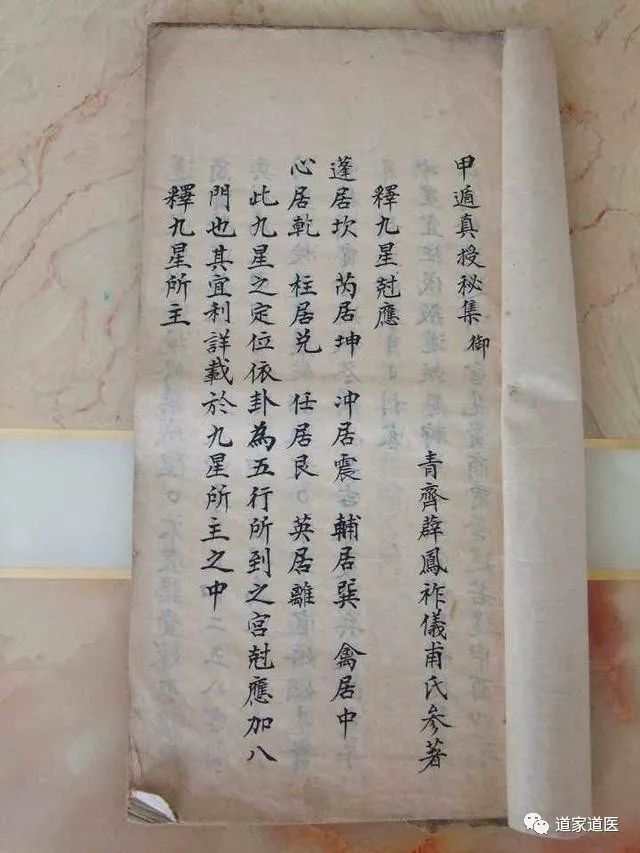 甲遁真授秘集 御
青齊薛鳳祚儀甫氏參著
釋九星尅應
蓬居坎 芮居坤 冲居震 輔居巽 禽居中
心居乾 柱居兑 任居艮 英居離
此九星之定位依卦為五行所到之宮尅應加八
門也其宜利詳載於九星所主之中
釋九星所主
道家道医